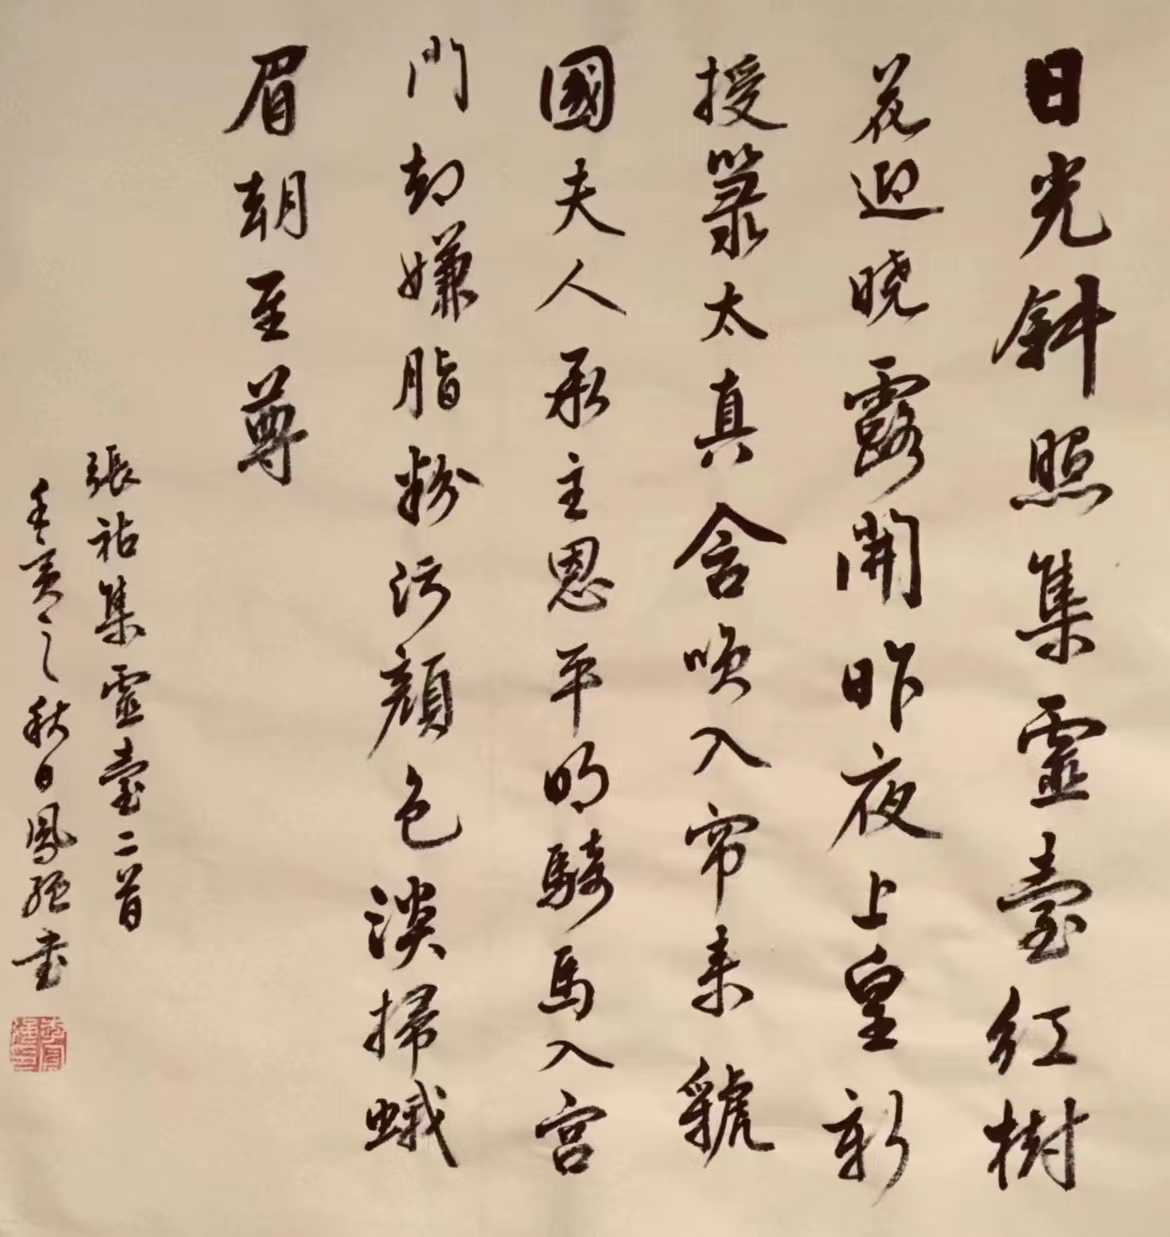 日光斜照集靈臺紅樹
花迎晓露開昨夜上皇新
授箓太真含咲入帘来虢
國夫人承主恩平明騎馬入宫
門却嫌脂粉污顔色淡掃蛾
眉朝至尊
張祜集靈臺二首
壬寅之秋日鳳强书